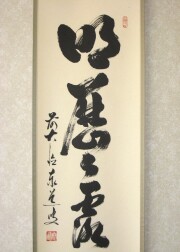 明歴々露
前大徳